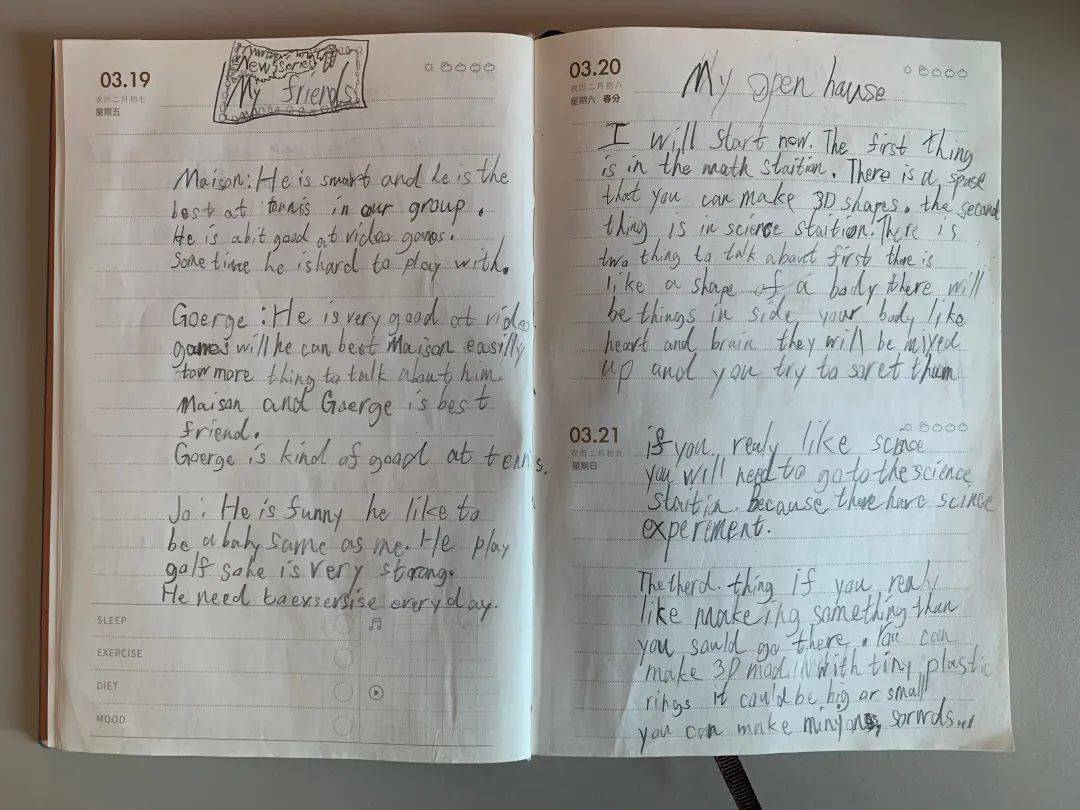 03.19
农历二月初七
星期五
New sories
My friends
Maison: He is smart and he is the
best at tennis in our group.
He is a bit good at video games.
Some time he is hard to play with.
Goerge: He is very good at video
games will he can best Maison easilly
tow more thing to talk about him.
Maison and Goerge is best
friend.
Goerge is kind of good at tennis.
Jo: He is funny he like to
be a baby same as me. He play
golf so he is very storong.
He need to exsersise every day.
SLEEP
EXERCISE
DIET
MOOD
03.20
农历二月初八
星期六 春分
My open hause
I will start now. The first thing
is in the math staition. There is a spase
that you can make 3D shapes. the second
thing is in science staition. There is
two thing to talk about first there is
like a shape of a body there will
be things in side your body like
heart and brain they will be mixed
up and you try to soret tham
03.21
农历二月初九
星期日
if you realy like scince
you will need to go to the science
staition. because there have scince
experement.
The therd thing if you realy
like makeing something than
you sould go there. You can
make 3D modl with tiny plastic
rings it could be big or small
you can make minyons, sorwrds,